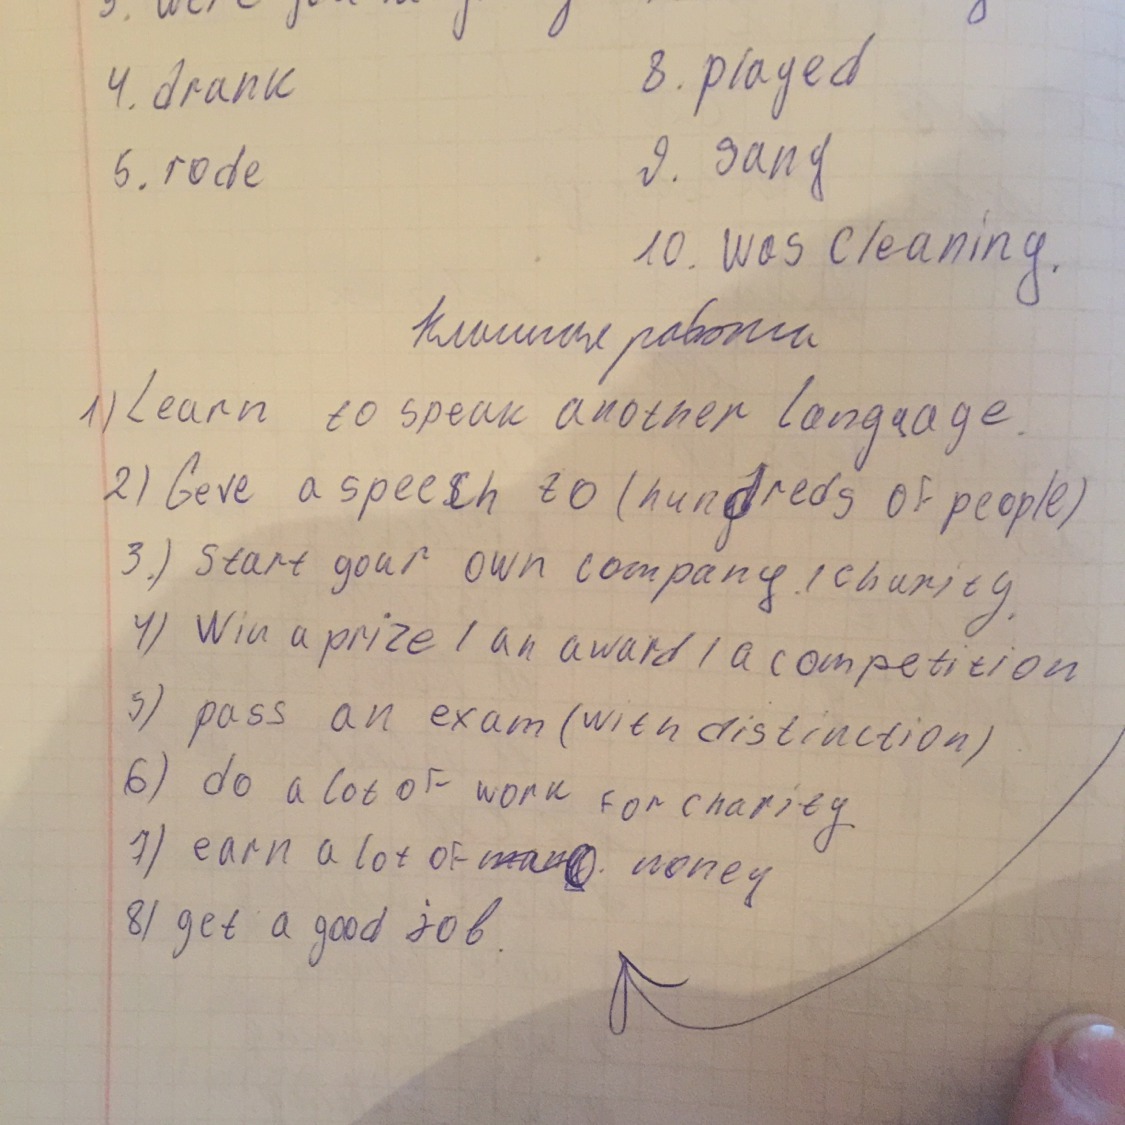 4. drank
5. rode
8. played
9. sang
10. was cleaning.
Классная работа
1) Learn to speak another language.
2) Geve a speech to (hundreds of people)
3.) Start your own company / charity.
4) Win a prize / an award / a competition
5) pass an exam (with distinction)
6) do a lot of work for charity
7) earn a lot of money
8) get a good job.